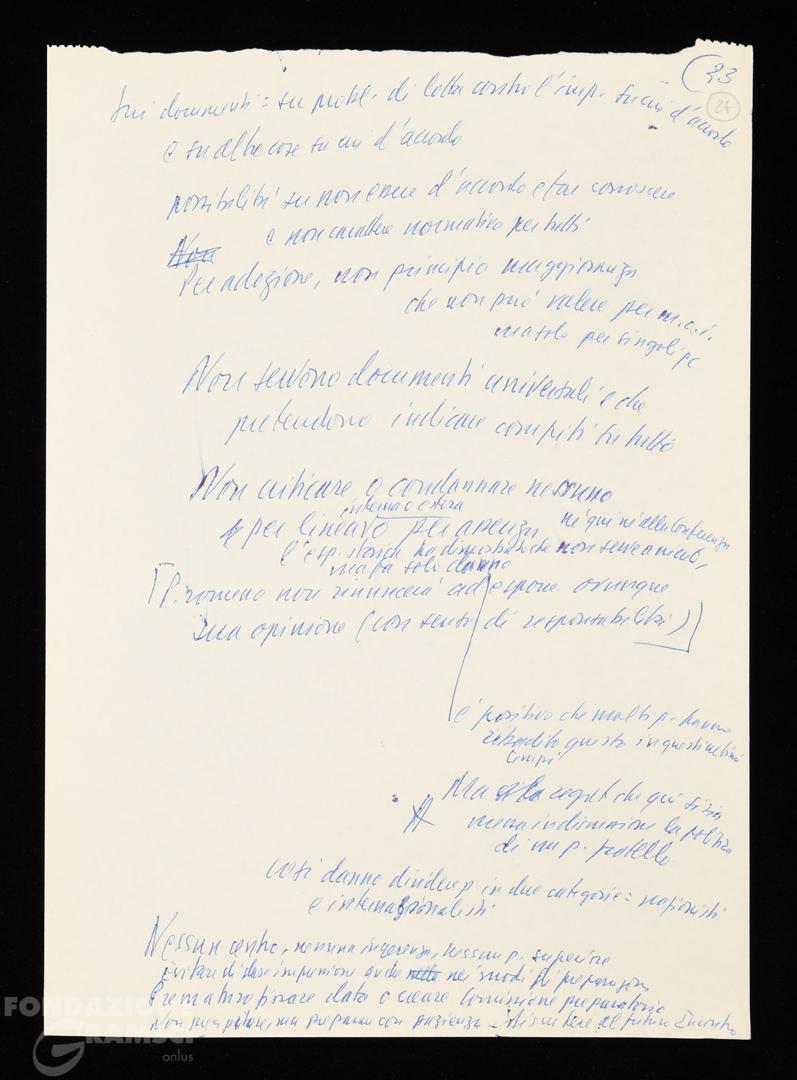 (23
24
Sui documenti = su probl. di lotta contro l'imp. su cui d'accordo
e su altre cose su cui d'accordo
possibilità su non essere d'accordo e far conoscere
e non carattere normativo per tutti
Non
Per adozione, non principio maggioranza
che non può valere per m.c.i.
ma solo per singoli pc
Non servono documenti universali e che
pretendono indicare compiti su tutto
Non criticare o condannare nessuno
interna o estera
per linea o per assenza né qui né alla Conferenza
l'esp. storica ha dimostrato che non serve a niente,
ma fa solo danno
P. romeno non rinuncerà ad esporre ovunque
sua opinione (con senso di responsabilità)
è positivo che molti p. hanno
ribadito questo in questi ultimi
tempi
Ma regret che qui si sia
messa in discussione la politica
di un p. fratello
così danno dividere p. in due categorie = nazionisti
e internazionalisti
Nessun centro, nessuna ingerenza, nessun p. superiore
Evitare di dare impressione anche nei modi di preparazione
Prematuro fissare data o creare Commissione preparatoria
Non precipitare, ma preparare con pazienza – discutere al futuro Incontro
FONDAZIONE
GRAMSCI
onlus